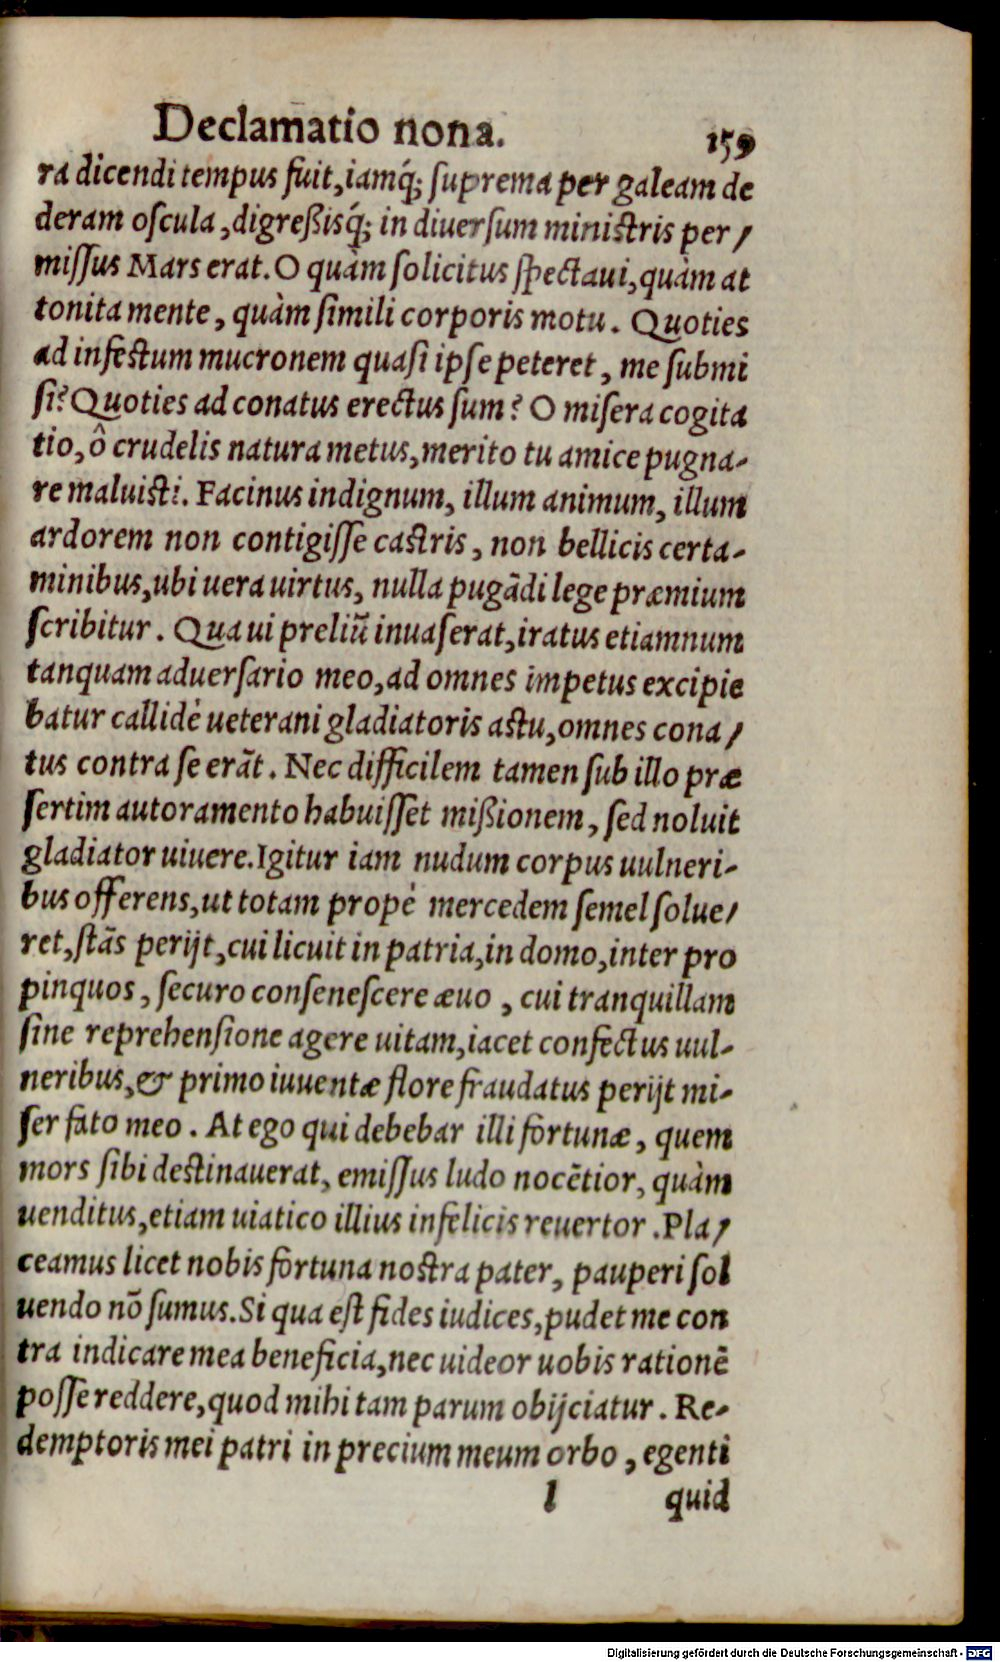 Declamatio nona. 159
ra dicendi tempus fuit, iamq́; ſuprema per galeam de
deram oſcula, digreßisq́; in diuerſum miniſtris per/
miſſus Mars erat. O quàm ſolicitus ſpectaui, quàm at
tonita mente, quàm ſimili corporis motu. Quoties
ad infeſtum mucronem quaſi ipſe peteret, me ſubmi
ſi? Quoties ad conatus erectus ſum? O miſera cogita
tio, ô crudelis natura metus, merito tu amice pugna-
re maluiſti. Facinus indignum, illum animum, illum
ardorem non contigiſſe caſtris, non bellicis certa-
minibus, ubi uera uirtus, nulla pugãdi lege præmium
ſcribitur. Qua ui preliũ inuaſerat, iratus etiamnum
tanquam aduerſario meo, ad omnes impetus excipie
batur callidè ueterani gladiatoris aſtu, omnes cona/
tus contra ſe erãt. Nec difficilem tamen ſub illo præ
ſertim autoramento habuiſſet mißionem, ſed noluit
gladiator uiuere. Igitur iam nudum corpus uulneri-
bus offerens, ut totam propè mercedem ſemel ſolue/
ret, ſtãs perijt, cui licuit in patria, in domo, inter pro
pinquos, ſecuro conſeneſcere æuo, cui tranquillam
ſine reprehenſione agere uitam, iacet confectus uul-
neribus, & primo iuuentæ flore fraudatus perijt mi-
ſer fato meo. At ego qui debebar illi fortunæ, quem
mors ſibi deſtinauerat, emiſſus ludo nocẽtior, quàm
uenditus, etiam uiatico illius infelicis reuertor. Pla/
ceamus licet nobis fortuna noſtra pater, pauperi ſol
uendo nõ ſumus. Si qua eſt fides iudices, pudet me con
tra indicare mea beneficia, nec uideor uobis rationẽ
poſſe reddere, quod mihi tam parum obijciatur. Re-
demptoris mei patri in precium meum orbo, egenti
l quid
Digitalisierung gefördert durch die Deutsche Forschungsgemeinschaft - DFG